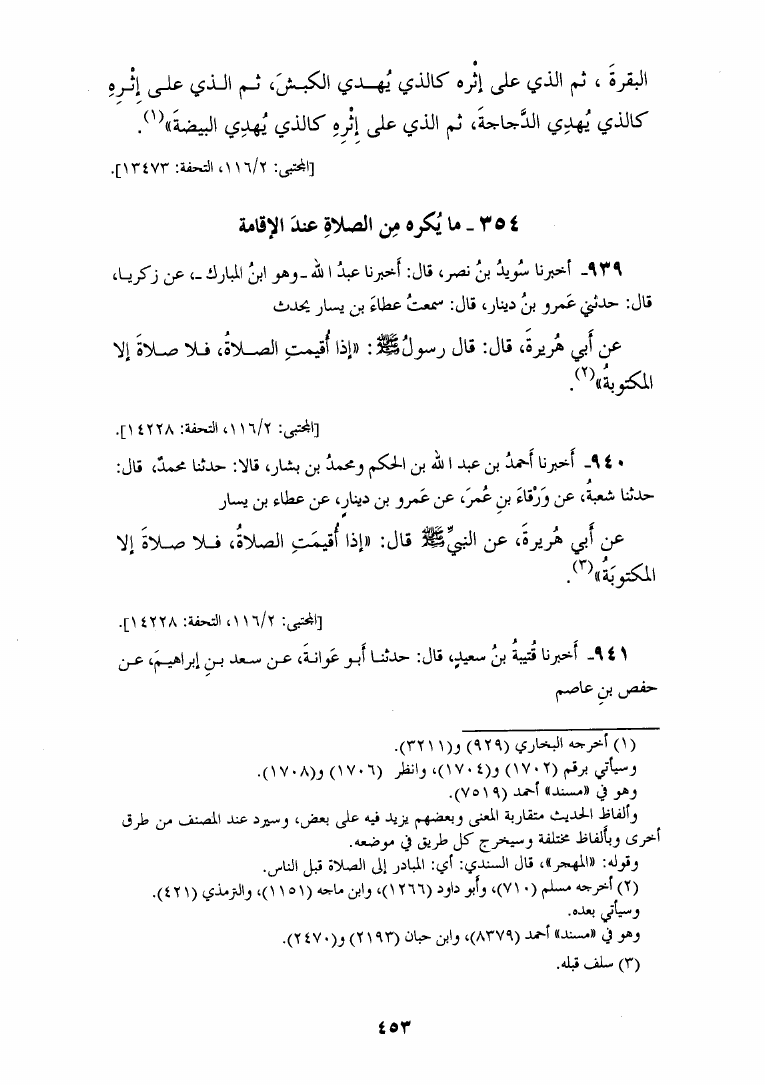 البقرةَ ، ثم الذي على إثْره كالذي يُهـدي الكبشَ، ثـم الـذي علـى إِثْـرِهِ
كالذي يُهدِي الدَّجاجةَ، ثم الذي على إِثْرِهِ كالذي يُهدِي البيضةَ»(١).
[المجتبى: ١١٦/٢، التحفة: ١٣٤٧٣].
٣٥٤ ـ ما يُكره مِن الصلاةِ عندَ الإقامة
٩٣٩ـ أخبرنا سُويدُ بنُ نصر، قال: أخبرنا عبدُ الله ـ وهو ابنُ المبارك ـ، عن زكريـا،
قال: حدثني عَمرو بنُ دينار، قال: سمعتُ عطاءَ بن يسار يحدث
عن أبي هُريرةَ، قال: قال رسولُ ﷺ : «إذا أُقيمتِ الصـلاةُ، فـلا صـلاةَ إلا
المكتوبةُ»(٢).
[المجتبى: ١١٦/٢، التحفة: ١٤٢٢٨].
٩٤٠ـ أخبرنا أحمدُ بن عبد الله بن الحكم ومحمدُ بن بشار، قالا: حدثنا محمدٌ، قال:
حدثنا شعبةُ، عن وَرْقاءَ بنِ عُمرَ، عن عَمرو بن دينارٍ، عن عطاء بن يسار
عن أبي هُريرةَ، عن النبيِّ ﷺ قال: «إذا أُقيمَتِ الصلاةُ، فـلا صـلاةَ إلا
المكتوبَةُ»(٣).
[المجتبى: ١١٦/٢، التحفة: ١٤٢٢٨].
٩٤١ـ أخبرنا قُتيبةُ بنُ سعيدٍ، قال: حدثنـا أبـو عَوانـةَ، عـن سـعد بـنِ إبراهيـمَ، عـن
حفص بنِ عاصم
(١) أخرجه البخاري (٩٢٩) و(٣٢١١).
وسيأتي برقم (١٧٠٢) و(١٧٠٤)، وانظر (١٧٠٦) و(١٧٠٨).
وهو في «مسند» أحمد (٧٥١٩).
وألفاظ الحديث متقاربة المعنى وبعضهم يزيد فيه على بعض، وسيرد عند المصنف من طرق
أخرى وبألفاظ مختلفة وسيخرج كل طريق في موضعه.
وقوله: «المهجر»، قال السندي: أي: المبادر إلى الصلاة قبل الناس.
(٢) أخرجه مسلم (٧١٠)، وأبو داود (١٢٦٦)، وابن ماجه (١١٥١)، والترمذي (٤٢١).
وسيأتي بعده.
وهو في «مسند» أحمد (٨٣٧٩)، وابن حبان (٢١٩٣) و(٢٤٧٠).
(٣) سلف قبله.
٤٥٣